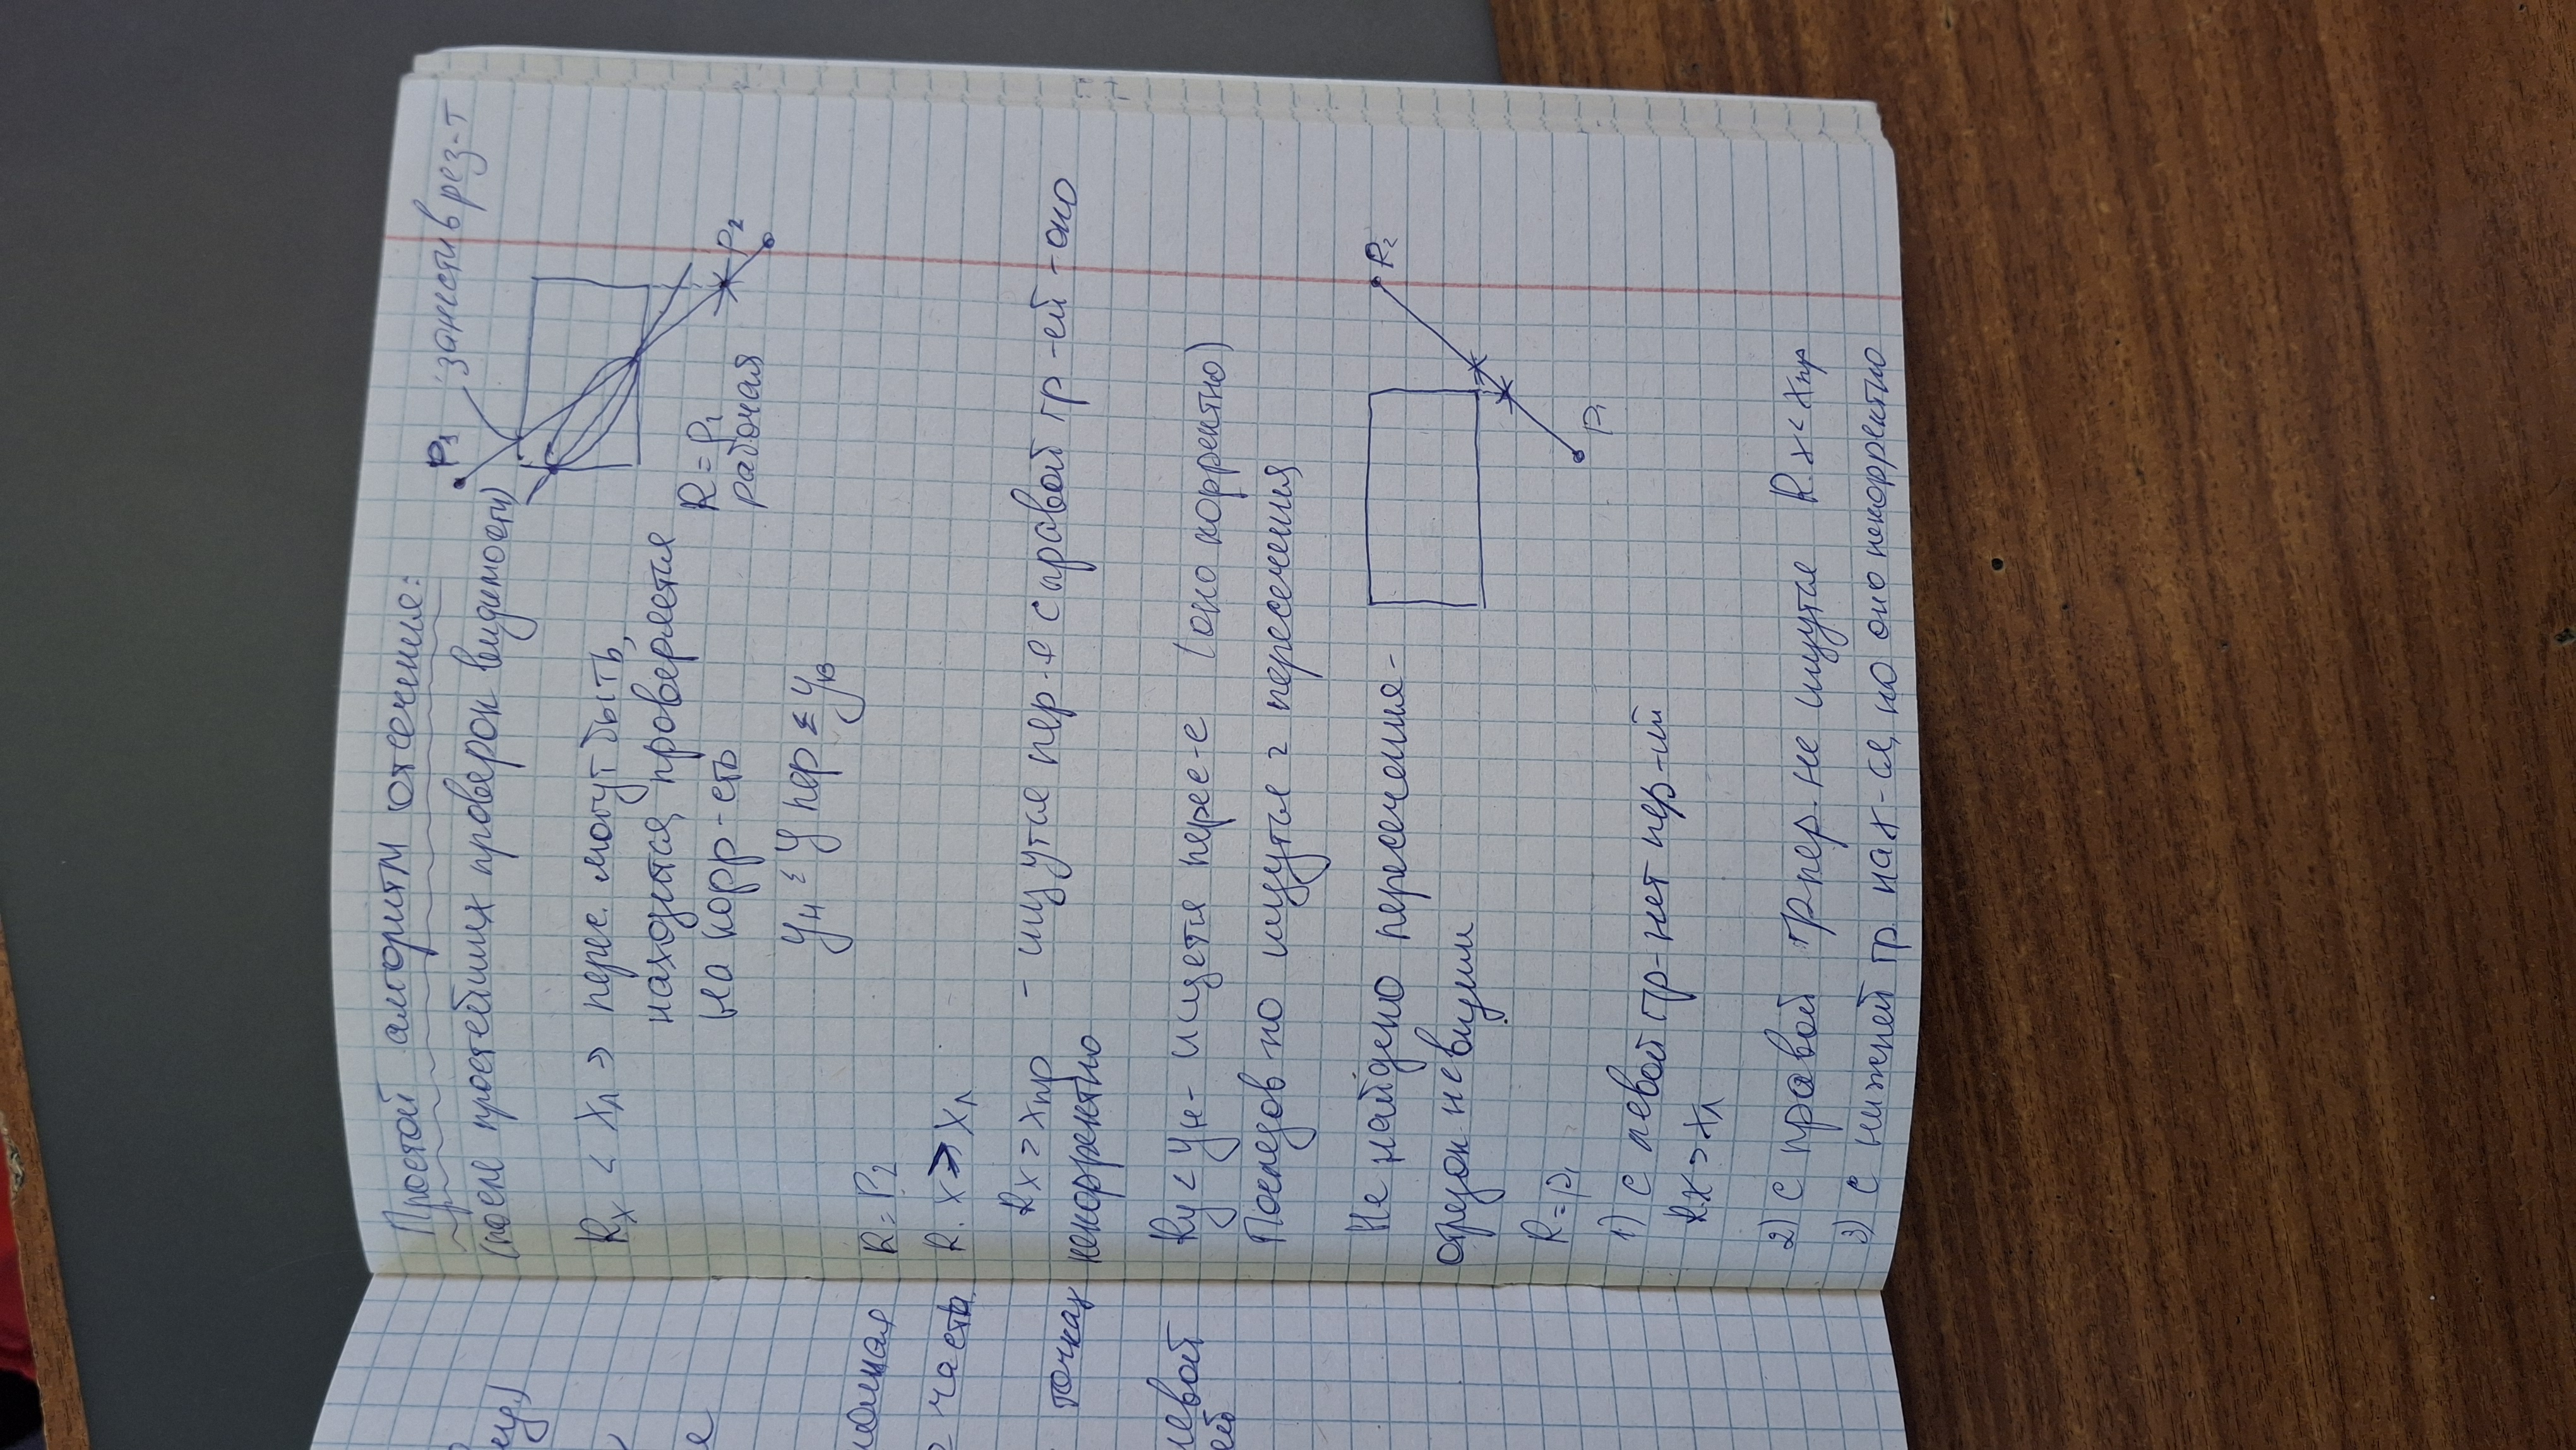 Простой алгоритм отсечения:
(после простейших проверок видимости)
P1
занести в рез-т
Rx < Xл => перес. могут быть,
находится, проверяется
на корр-сть
R = P1
рабочая
P2
yн ≤ y пер ≤ yв
R = P2
R.x > Xл
Rx > Xпр - ищутся пер-я с правой гр-ей - оно
некорректно
Ry < yн - ищется перес-е (оно корректно)
Последов-но ищутся 2 пересечения
Не найдено пересечения -
отрезок невидим
P2
P1
R = P1
1) с левой гр-нет пер-ий
R.x > Xл
2) с правой гр пер. не ищутся R.x < Xпр
3) с нижней гр. нах-ся, но оно некорректно
часть
точках
левой
ей